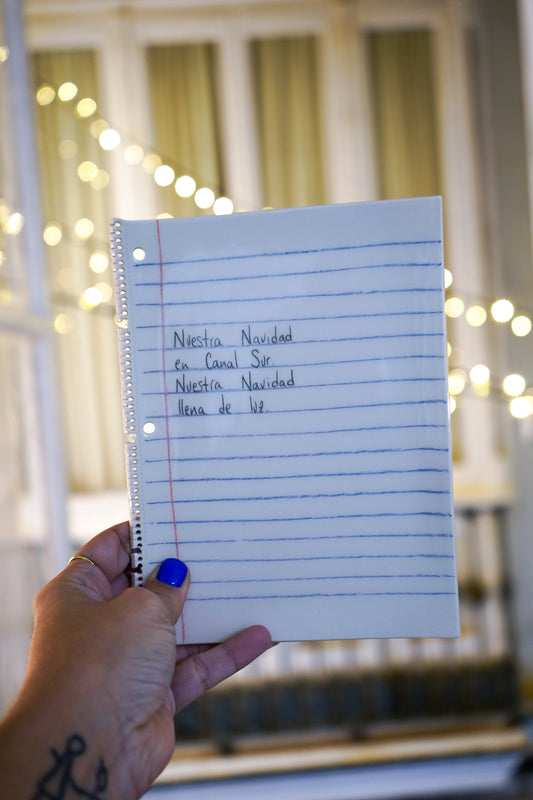 Nuestra Navidad
en Canal Sur.
Nuestra Navidad
llena de luz.